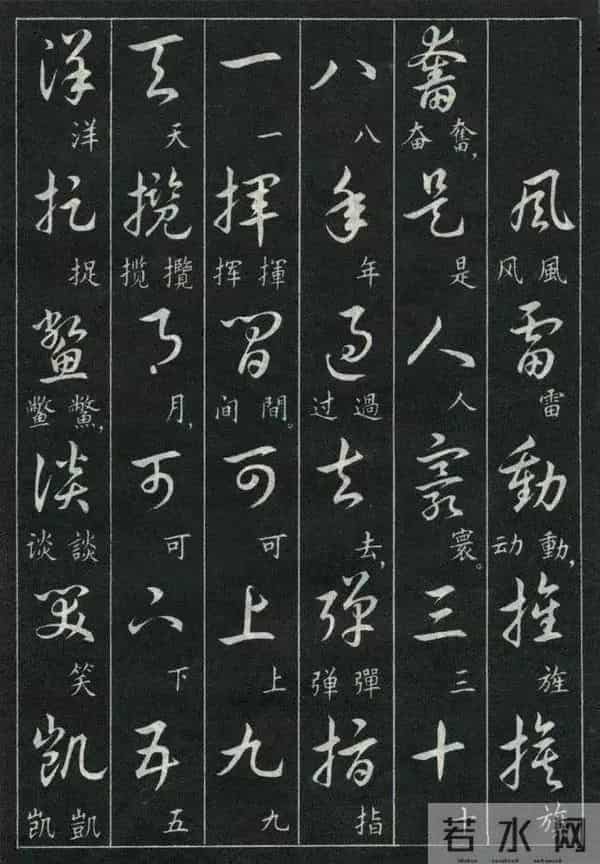 風雷動旌旗
風风 雷 動,动 旌 旗
奮是人寰三十
奮,奋 是 人 寰。 三 十
八年過去彈指
八 年 過过 去, 彈弹 指
一揮間可上九
一 揮挥 間。间 可 上 九
天攬月可下五
天 攬揽 月, 可 下 五
洋捉鱉談笑凱
洋 捉 鱉,鳖 談谈 笑 凱凯
若水网